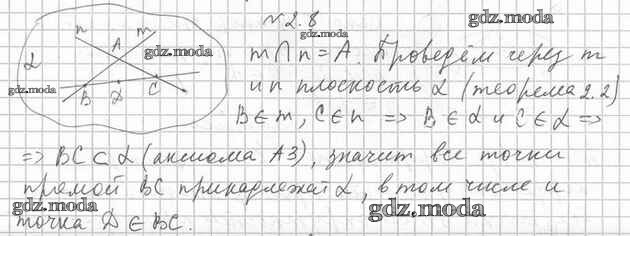 №2.8
gdz.moda
n
m
A
gdz.moda
gdz.moda
α
gdz.moda
B
D
C
m ∩ n = A. Проведём через m
и n плоскость α (теорема 2.2)
B ∈ m, C ∈ n => B ∈ α и C ∈ α =>
=> BC ⊂ α (аксиома А3), значит все точки
прямой BC принадлежат α, в том числе и
gdz.moda
gdz.moda
точка D ∈ BC.